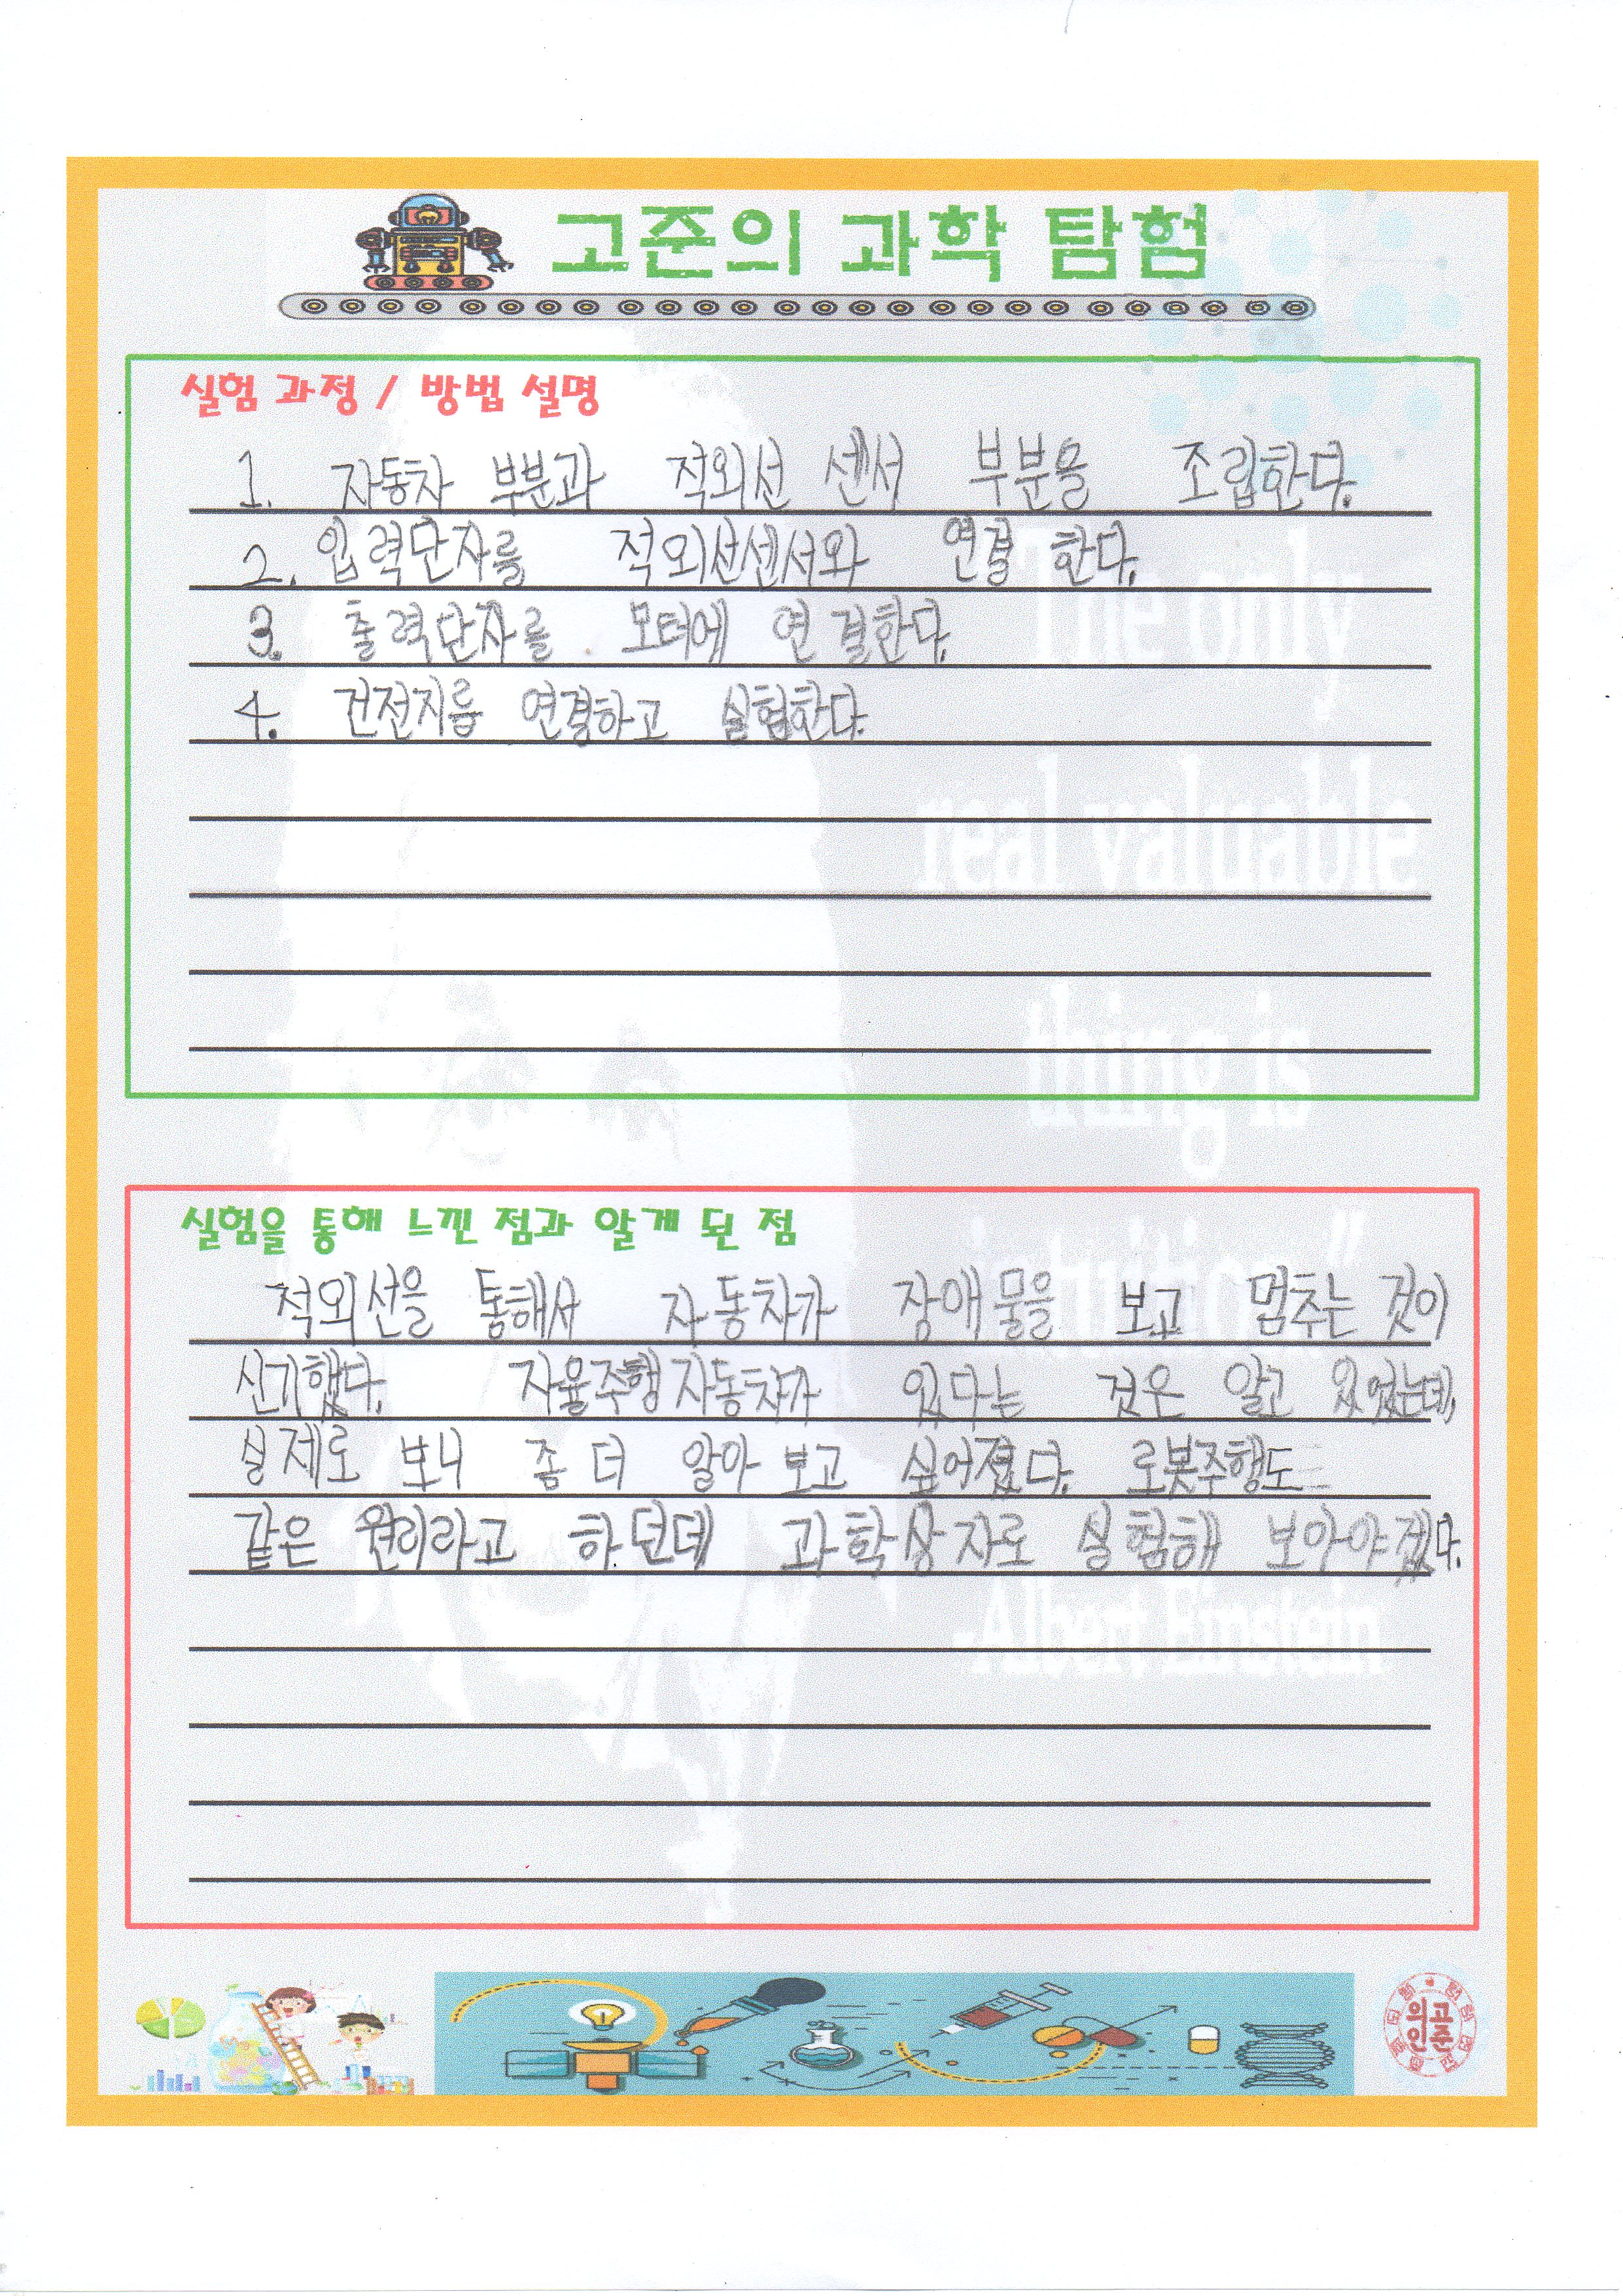 고준의 과학 탐험
실험 과정 / 방법 설명
1. 자동차 부분과 적외선 센서 부분을 조립한다.
2. 입력단자를 적외선센서와 연결 한다.
3. 출력단자를 모터에 연결한다.
4. 건전지를 연결하고 실험한다.
The only
real valuable
thing is
실험을 통해 느낀 점과 알게 된 점
intuition"
적외선을 통해서 자동차가 장애물을 보고 멈추는 것이
신기했다. 자율주행자동차가 있다는 것은 알고 있었는데,
실제로 보니 좀 더 알아 보고 싶어졌다. 로봇주행도
같은 원리라고 하던데 과학상자로 실험해 보아야겠다.
-Albert Einstein
의고
인준